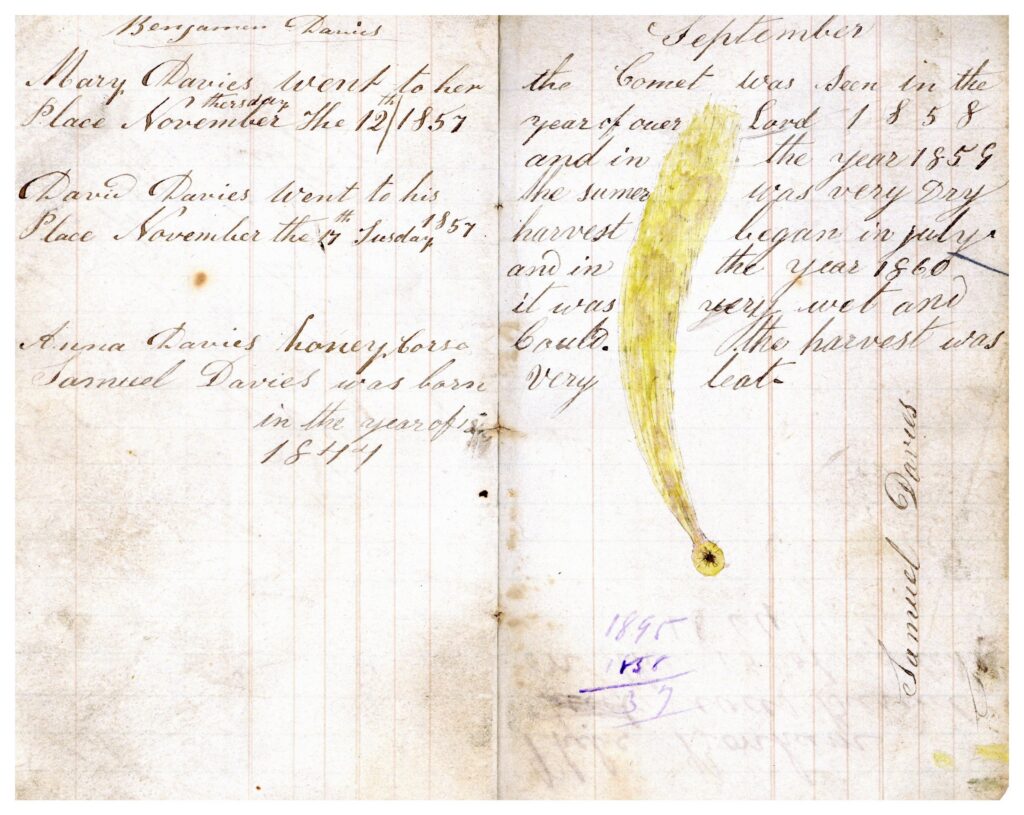 Benjamin Davies
Mary Davies went to her
thersday
Place November The 12th 1857
David Davies went to his
Place November the 17th Tusday 1857
Anna Davies honey Corso
Samuel Davies was born
in the year of
1844
September
the Comet was seen in the
year of ouer Lord 1858
and in the year 1859
the sumer was very Dry
harvest began in july
and in the year 1860
it was very wet and
Could. the harvest was
very leat
Samuel Davies
1895
1858
37